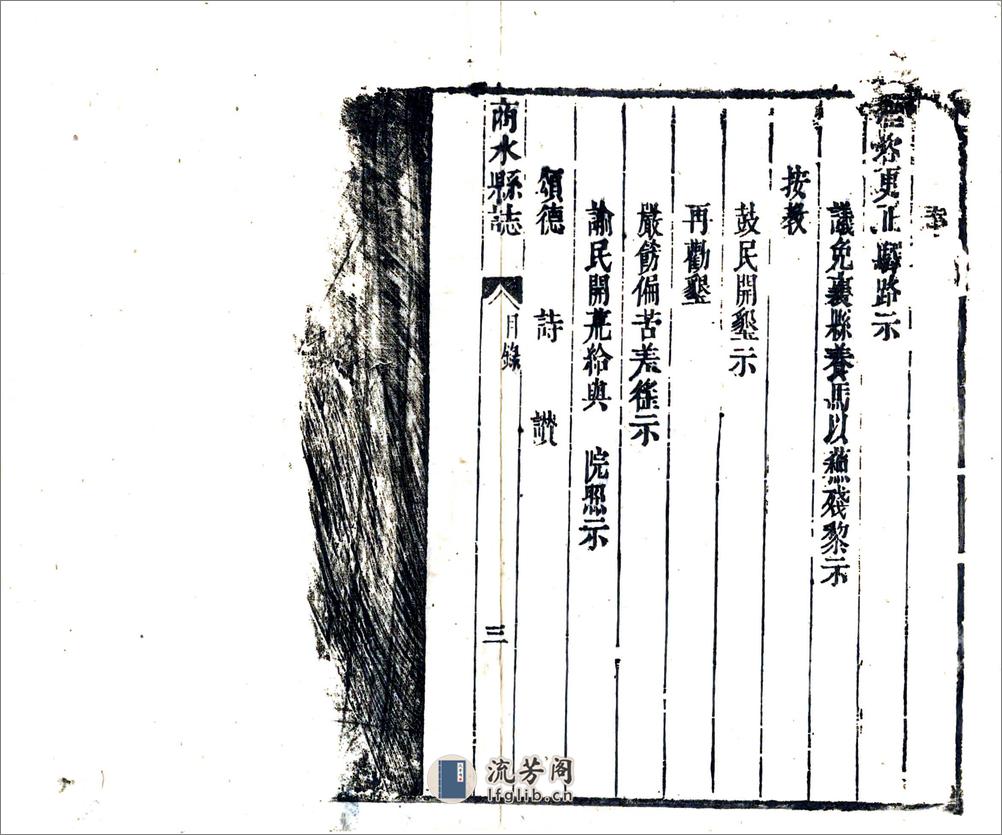 更正驛路示
議免襄縣養馬以蘓殘黎示
按教
鼓民開墾示
再勸墾
嚴飭偏苦差徭示
諭民開荒給與　院照示
頌德　詩　讃
商水縣誌　目錄　三
流芳阁
lfglib.cn